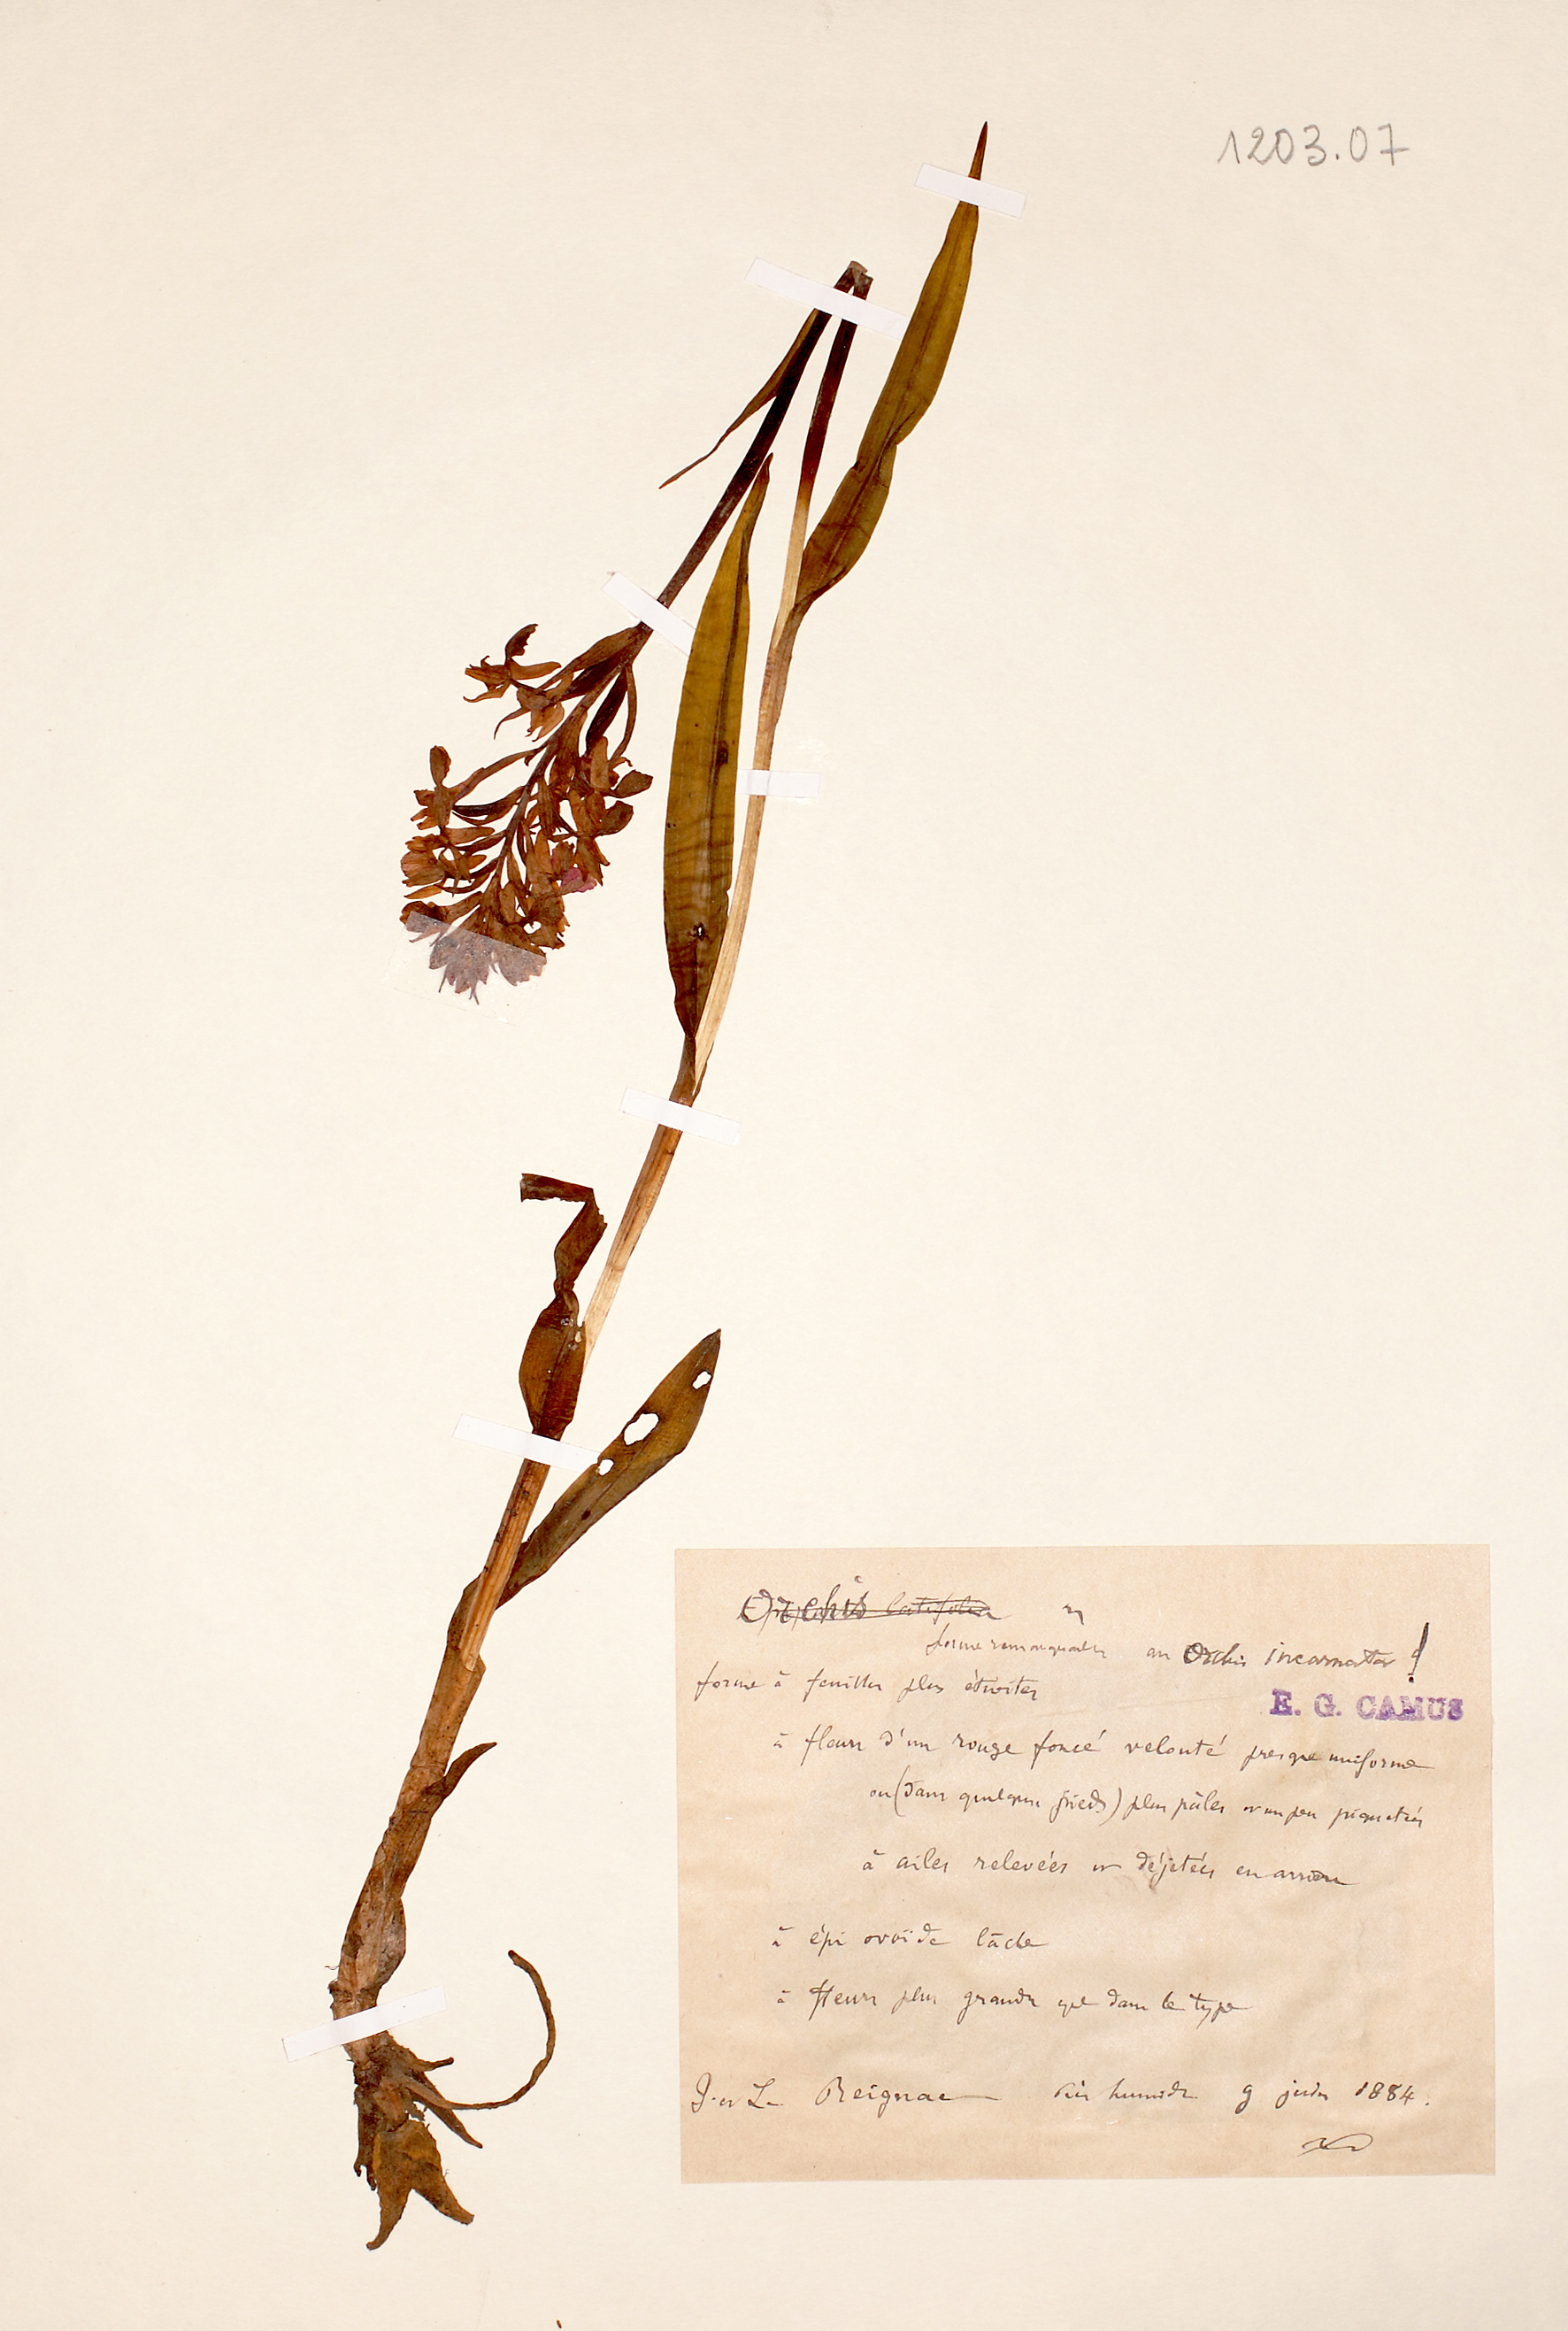 1203.07
Orchis latifolia
forme remarquable an Orchis incarnata !
forme à feuilles plus étroites
E. G. CAMUS
à fleurs d'un rouge foncé velouté presque uniforme
ou (dans quelques pieds) plus pâles et un peu piquetées
à ailes relevées et déjetées en arrière
à épi ovoïde lâche
à fleurs plus grandes que dans le type
I. et L. Reignac humide 9 juin 1884.